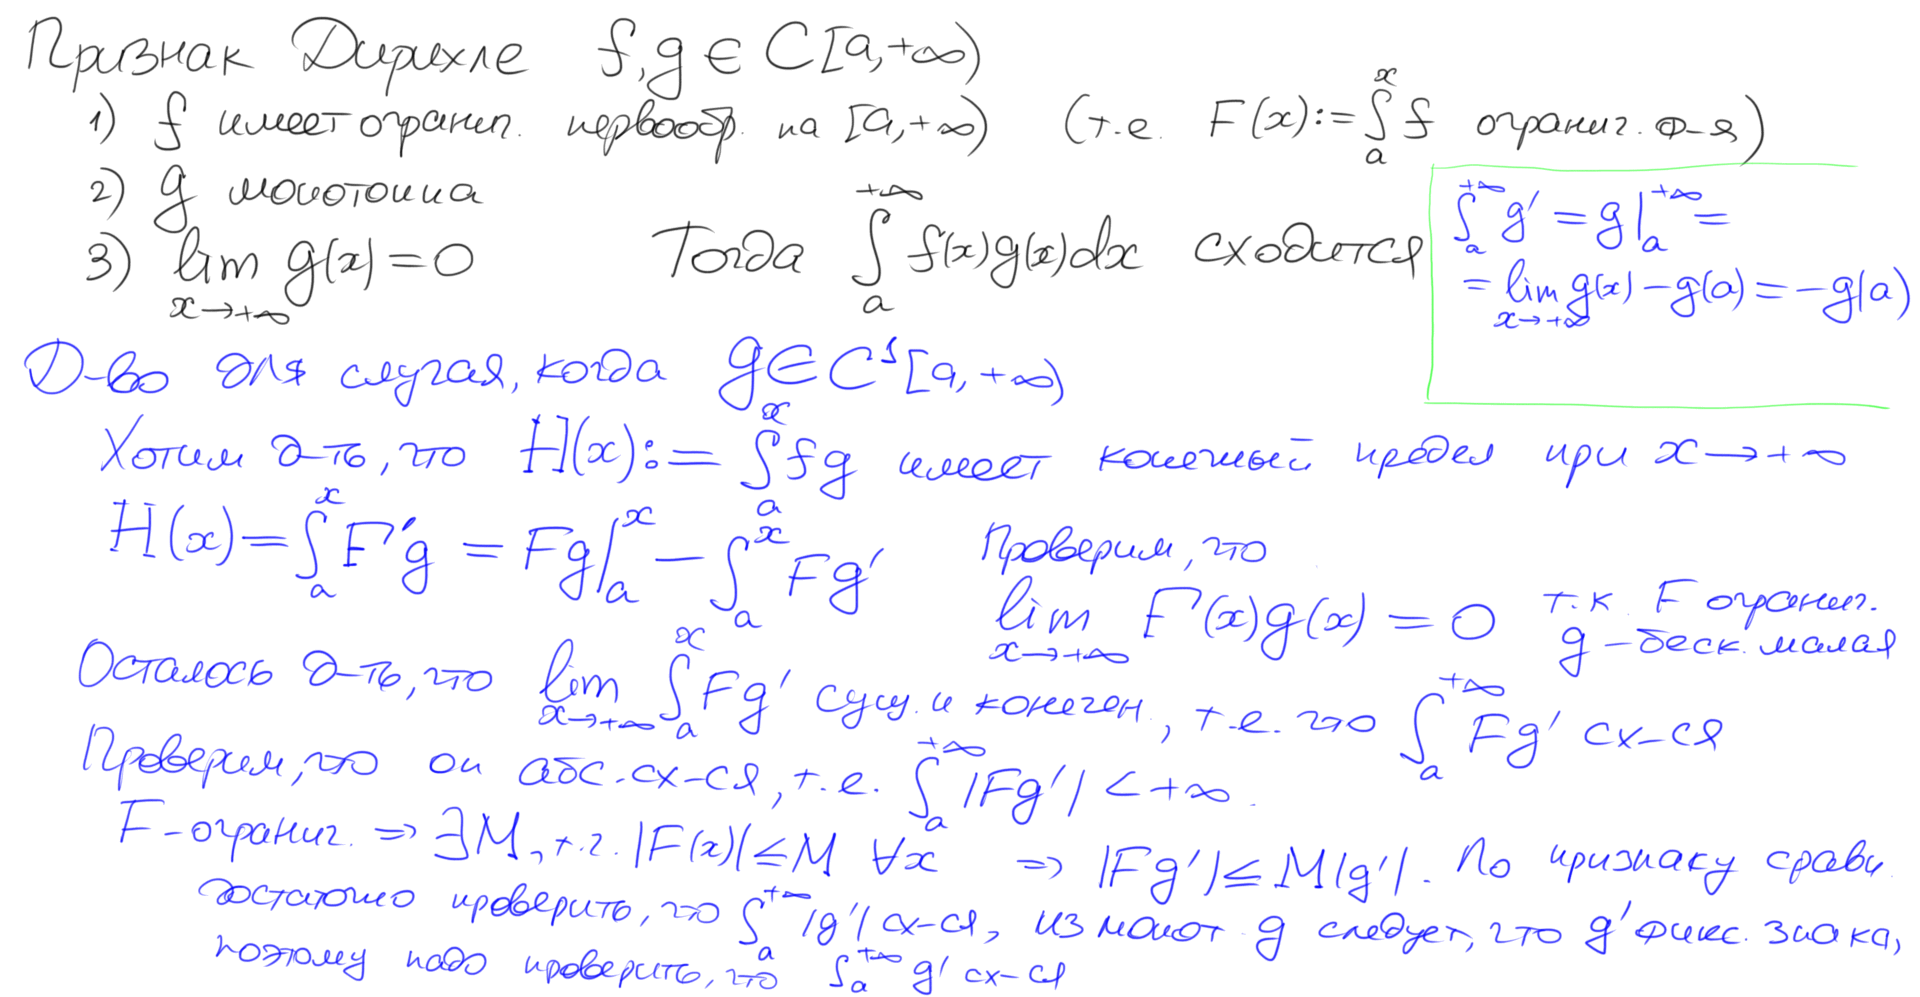 Признак Дирихле f, g ∈ C[a, +∞)
1) f имеет огранич. первообр. на [a, +∞) (т.е. F(x) := ∫_a^x f огранич. ф-я)
2) g монотонна
3) lim_{x→+∞} g(x) = 0 Тогда ∫_a^{+∞} f(x)g(x)dx сходится
∫_a^{+∞} g' = g|_a^{+∞} =
= lim_{x→+∞} g(x) − g(a) = −g(a)
Д-во для случая, когда g ∈ C¹[a, +∞)
Хотим д-ть, что H(x) := ∫_a^x fg имеет конечный предел при x → +∞
H(x) = ∫_a^x F'g = Fg|_a^x − ∫_a^x Fg'
Проверим, что
lim_{x→+∞} F(x)g(x) = 0 т.к. F огранич.
g – беск. малая
Осталось д-ть, что lim_{x→+∞} ∫_a^x Fg' сущ. и конечен, т.е. что ∫_a^{+∞} Fg' сх-ся
Проверим, что он абс. сх-ся, т.е. ∫_a^{+∞} |Fg'| < +∞.
F – огранич. ⇒ ∃M, т.ч. |F(x)| ≤ M ∀x ⇒ |Fg'| ≤ M|g'|. По признаку сравн.
достаточно проверить, что ∫_a^{+∞} |g'| сх-ся, из монот. g следует, что g' фикс. знака,
поэтому надо проверить, что ∫_a^{+∞} g' сх-ся